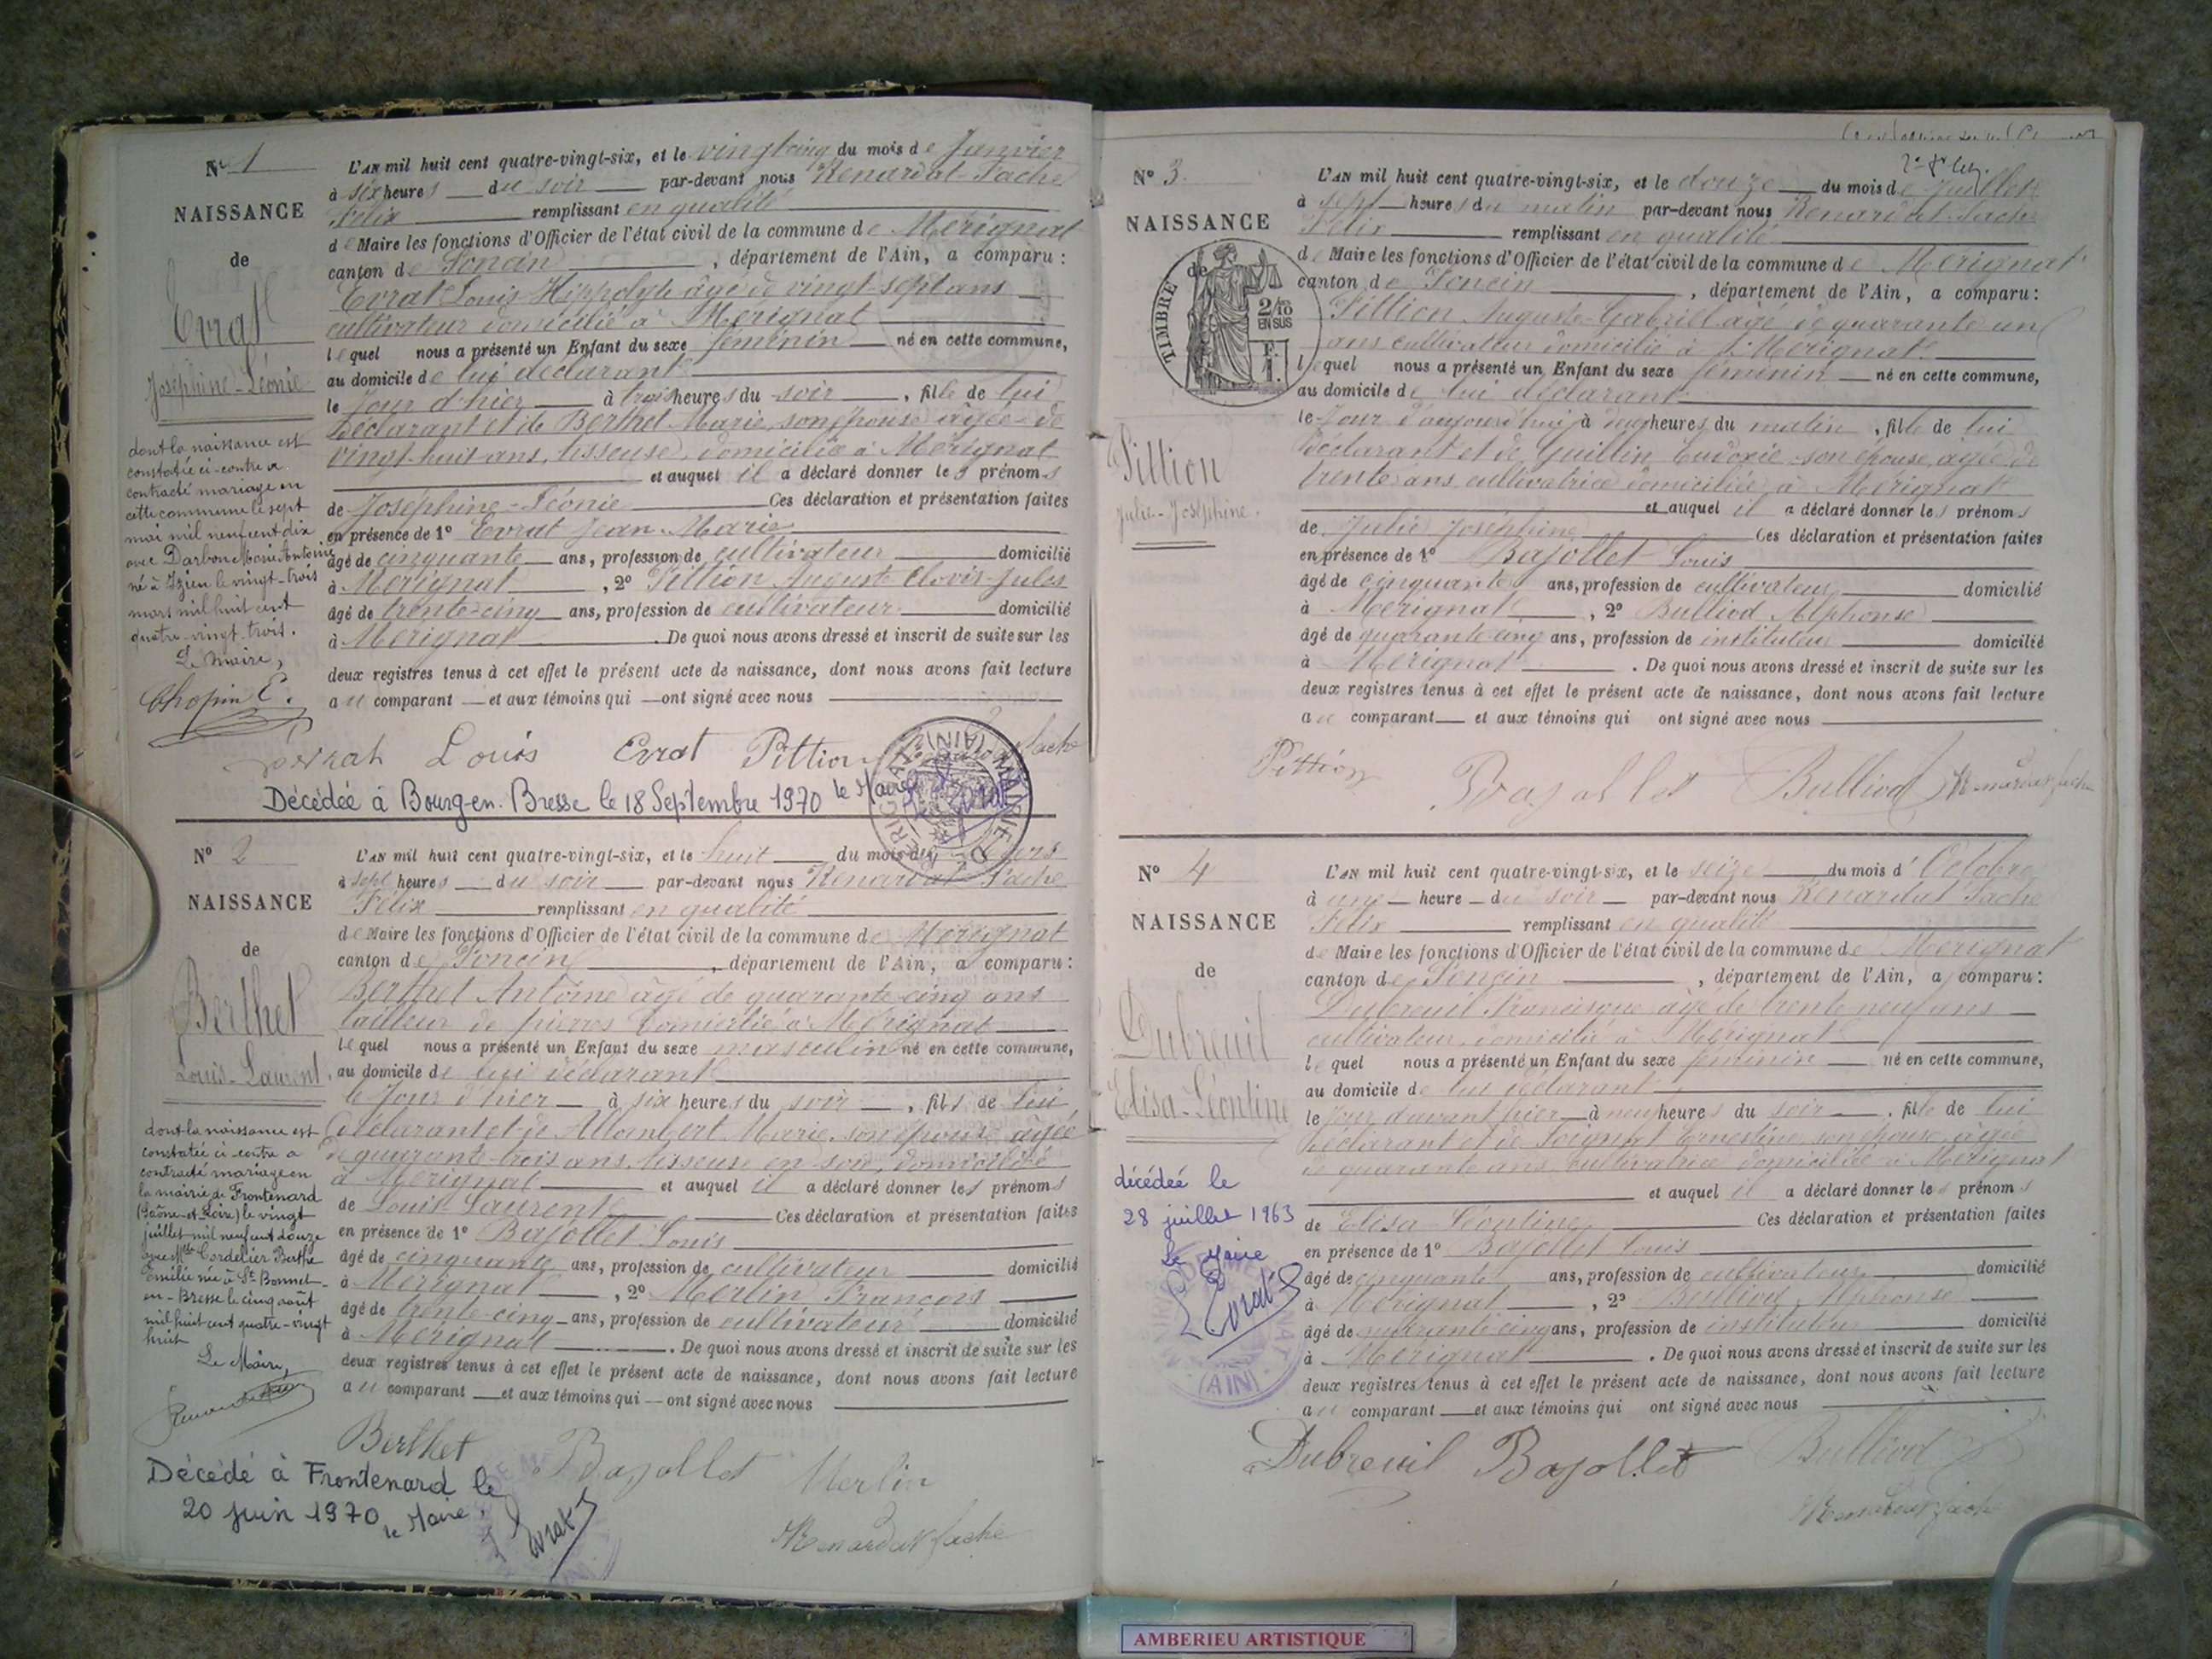 N° 1
NAISSANCE
de
Evrat
Joséphine-Léonie
dont la naissance est
constatée ci-contre a
contracté mariage en
cette commune le sept
mai mil neuf cent dix
avec Darbon Marie Antoine
né à Izieu le vingt-trois
mars mil huit cent
quatre-vingt-trois.
Le Maire,
Chopin E.
L'AN mil huit cent quatre-vingt-six, et le vingt cinq du mois de Janvier
à six heures du soir par-devant nous Renardat-Fache
Félix remplissant en qualité
de Maire les fonctions d'Officier de l'état civil de la commune de Mérignat
canton de Poncin, département de l'Ain, a comparu :
Evrat Louis Hippolyte âgé de vingt-sept ans
cultivateur domicilié à Mérignat
lequel nous a présenté un Enfant du sexe féminin né en cette commune,
au domicile de lui déclarant
le jour d'hier à trois heures du soir, fille de lui
déclarant et de Berthet Marie, son épouse âgée de
vingt-huit ans, tisseuse, domiciliée à Mérignat
et auquel il a déclaré donner les prénoms
de Joséphine-Léonie Ces déclaration et présentation faites
en présence de 1° Evrat Jean-Marie
âgé de cinquante ans, profession de cultivateur domicilié
à Mérignat, 2° Pittion Auguste Clovis-Jules
âgé de trente-cinq ans, profession de cultivateur domicilié
à Mérignat. De quoi nous avons dressé et inscrit de suite sur les
deux registres tenus à cet effet le présent acte de naissance, dont nous avons fait lecture
au comparant et aux témoins qui ont signé avec nous
Evrat Louis Evrat Pittion Renardat Fache
Décédée à Bourg-en-Bresse le 18 Septembre 1970 le Maire
N° 2
NAISSANCE
de
Berthet
Louis-Laurent
dont la naissance est
constatée ci-contre a
contracté mariage en
la mairie de Frontenard
(Saône-et-Loire) le vingt
juillet mil neuf cent douze
avec Mlle Cordelier Berthe
Emélie née à St Bonnet-
en-Bresse le cinq août
mil huit cent quatre-vingt
huit
Le Maire,
L'AN mil huit cent quatre-vingt-six, et le huit du mois de Mars
à sept heures du soir par-devant nous Renardat-Fache
Félix remplissant en qualité
de Maire les fonctions d'Officier de l'état civil de la commune de Mérignat
canton de Poncin, département de l'Ain, a comparu :
Berthet Antoine âgé de quarante-cinq ans
tailleur de pierres domicilié à Mérignat
lequel nous a présenté un Enfant du sexe masculin né en cette commune,
au domicile de lui déclarant
le jour d'hier à six heures du soir, fils de lui
déclarant et de Allombert Marie, son épouse âgée
de quarante-trois ans, tisseuse en soie, domiciliée
à Mérignat et auquel il a déclaré donner les prénoms
de Louis Laurent Ces déclaration et présentation faites
en présence de 1° Bajollet Louis
âgé de cinquante ans, profession de cultivateur domicilié
à Mérignat, 2° Merlin François
âgé de trente-cinq ans, profession de cultivateur domicilié
à Mérignat. De quoi nous avons dressé et inscrit de suite sur les
deux registres tenus à cet effet le présent acte de naissance, dont nous avons fait lecture
au comparant et aux témoins qui ont signé avec nous
Berthet Bajollet Merlin
Renardat Fache
Décédé à Frontenard le
20 juin 1970 le Maire,
Evrat
N° 3
NAISSANCE
de
TIMBRE
2/10
EN SUS
Pittion
Julie-Joséphine.
L'AN mil huit cent quatre-vingt-six, et le douze du mois de Juillet
à sept heures du matin par-devant nous Renardat-Fache
Félix remplissant en qualité
de Maire les fonctions d'Officier de l'état civil de la commune de Mérignat
canton de Poncin, département de l'Ain, a comparu :
Pittion Auguste-Gabriel âgé de quarante un
ans cultivateur domicilié à Mérignat
lequel nous a présenté un Enfant du sexe féminin né en cette commune,
au domicile de lui déclarant
le jour d'aujourd'hui à heures du matin, fille de lui
déclarant et de Guillin Eudoxie son épouse, âgée de
trente ans, cultivatrice domiciliée à Mérignat
et auquel il a déclaré donner les prénoms
de Julie Joséphine Ces déclaration et présentation faites
en présence de 1° Bajollet Louis
âgé de cinquante ans, profession de cultivateur domicilié
à Mérignat, 2° Bulliod Alphonse
âgé de quarante-cinq ans, profession de instituteur domicilié
à Mérignat. De quoi nous avons dressé et inscrit de suite sur les
deux registres tenus à cet effet le présent acte de naissance, dont nous avons fait lecture
au comparant et aux témoins qui ont signé avec nous
Pittion Bajollet Bulliod Renardat Fache
N° 4
NAISSANCE
de
Dubreuil
Elisa-Léontine
décédée le
28 juillet 1963
Le Maire
Evrat
(AIN)
L'AN mil huit cent quatre-vingt-six, et le seize du mois d'Octobre
à une heure du soir par-devant nous Renardat Fache
Félix remplissant en qualité
de Maire les fonctions d'Officier de l'état civil de la commune de Mérignat
canton de Poncin, département de l'Ain, a comparu :
Dubreuil Francisque âgé de trente-neuf ans
cultivateur, domicilié à Mérignat
lequel nous a présenté un Enfant du sexe féminin né en cette commune,
au domicile de lui déclarant
le jour d'avant hier à neuf heures du soir, fille de lui
déclarant et de Soignat Ernestine son épouse âgée
de quarante ans, cultivatrice domiciliée à Mérignat
et auquel il a déclaré donner les prénoms
de Elisa Léontine Ces déclaration et présentation faites
en présence de 1° Bajollet Louis
âgé de cinquante ans, profession de cultivateur domicilié
à Mérignat, 2° Bulliod Alphonse
âgé de quarante-cinq ans, profession de instituteur domicilié
à Mérignat. De quoi nous avons dressé et inscrit de suite sur les
deux registres tenus à cet effet le présent acte de naissance, dont nous avons fait lecture
au comparant et aux témoins qui ont signé avec nous
Dubreuil Bajollet Bulliod
Renardat Fache
AMBERIEU ARTISTIQUE